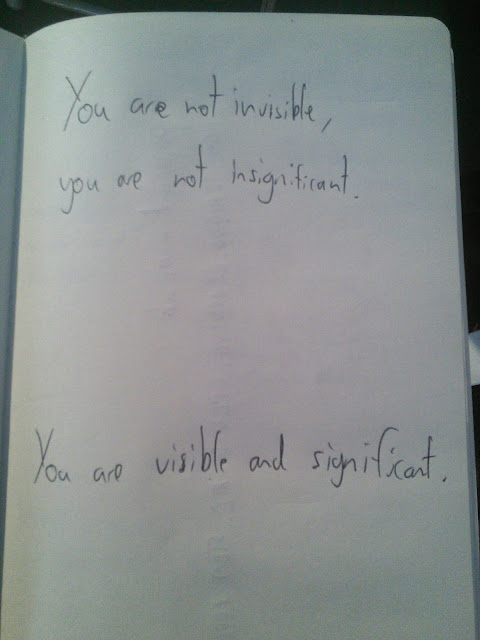 You are not invisible,
you are not insignificant.
You are visible and significant.